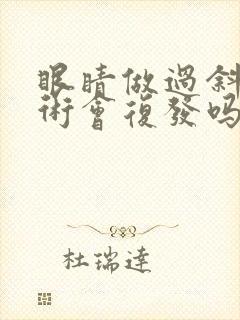 眼睛做過斜
術會復發吗
杜瑞達